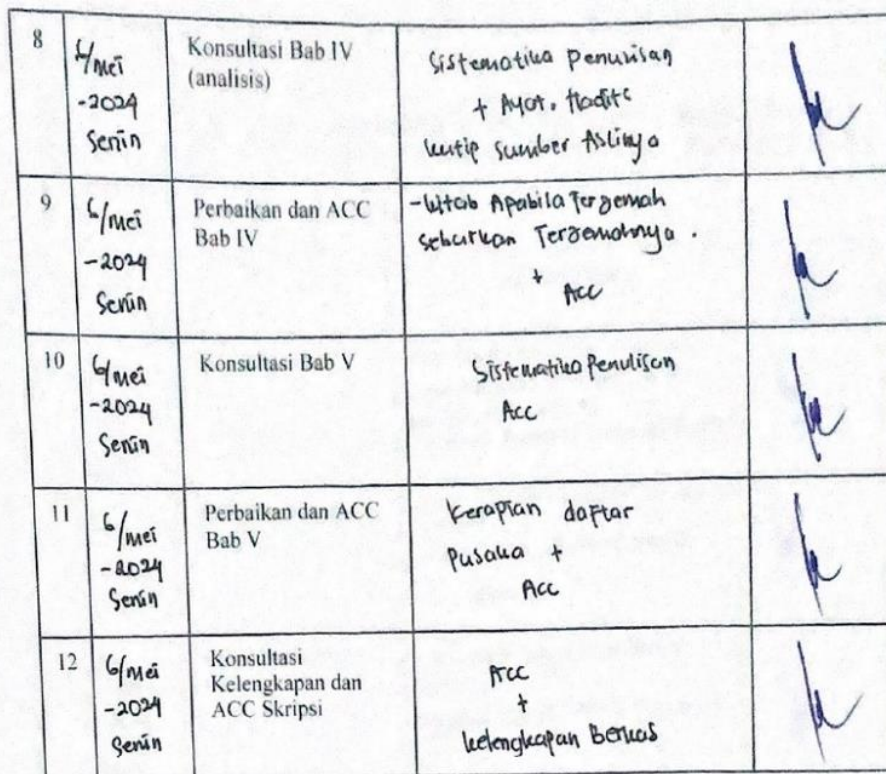 8
6/mei
-2024
Senin
Konsultasi Bab IV
(analisis)
Sistematika Penulisan
+ Ayat. Hadits
kutip sumber Aslinya
9
6/mei
-2024
Senin
Perbaikan dan ACC
Bab IV
-kitab Apabila Terjemah
sebutkan Terjemahnya.
+
Acc
10
6/mei
-2024
Senin
Konsultasi Bab V
Sistematika Penulisan
Acc
11
6/mei
-2024
Senin
Perbaikan dan ACC
Bab V
Kerapian daftar
Pusaka +
Acc
12
6/mei
-2024
Senin
Konsultasi
Kelengkapan dan
ACC Skripsi
Acc
+
kelengkapan Berkas